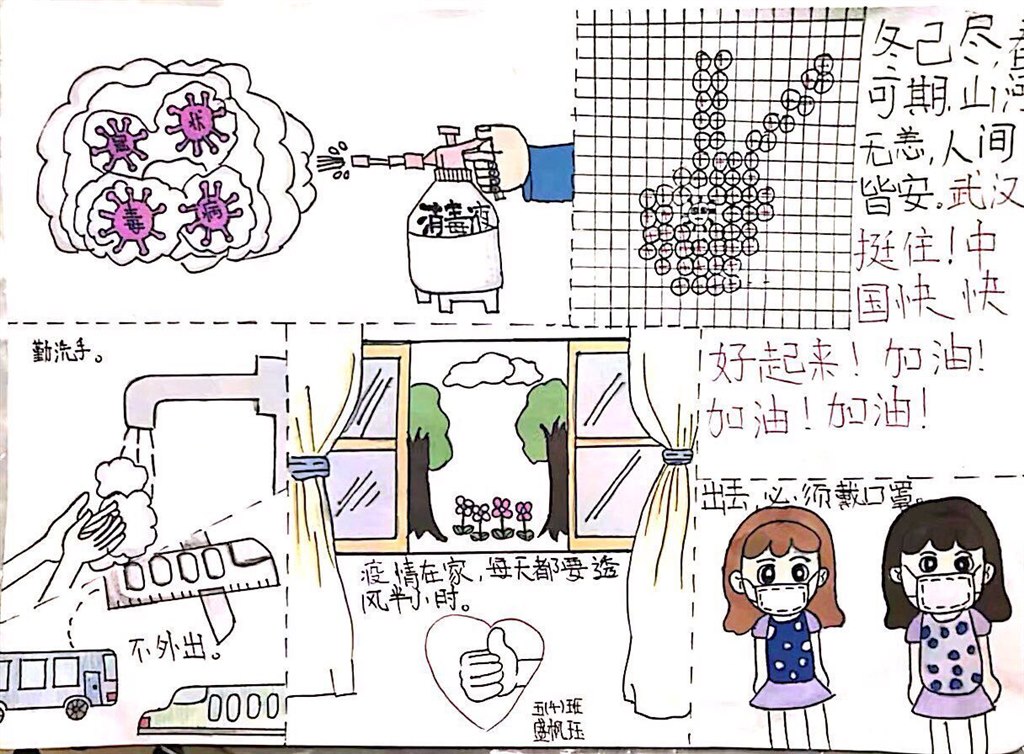 病
毒
病
毒
消毒液
冬已尽,春
可期,山河
无恙,人间
皆安。武汉
挺住!中
国快快
好起来!加油!
加油!加油!
勤洗手。
不外出。
疫情在家,每天都要透
风半小时。
出去,必须戴口罩。
五(4)班